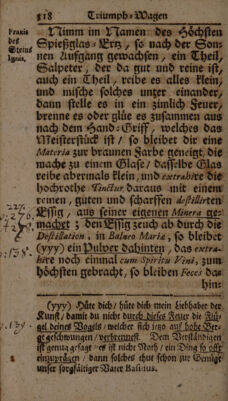 318 Triumph-Wagen
Praxis
des
Steins
Ignis.
Nimm im Namen des Höchsten
Spießglas-Ertz, so nach der Son-
nen Aufgang gewachsen, ein Theil,
Salpeter, der da gut und reine ist,
auch ein Theil, reibe es alles klein,
und mische solches unter einander,
dann stelle es in ein zimlich Feuer,
brenne es oder glüe es zusammen aus
nach dem Hand-Griff, welches das
Meisterstück ist / so bleibet dir eine
Materia zur braunen Farbe geneigt, die
mache zu einem Glase / dasselbe Glas
reibe abermals klein, und extrahire die
hochrothe Tinctur daraus mit einem
reinen, guten und scharffen destillirten
Essig, aus seiner eigenen Minera ge-
machet; den Essig zeuch ab durch die
Destillation, in Balneo Mariæ, so bleibet
(yyy) ein Pulver dahinten, das extra-
hire noch einmal cum Spiritu Vini, zum
höchsten gebracht, so bleiben Feces da-
hin:
(yyy) Hüte dich / hüte dich mein Liebhaber der
Kunst / damit du nicht durch dieses Feuer die Flü-
gel deines Vogels / welcher sich jetzo auf hohe Ber-
ge geschwungen / verbrennest. Dem Verständigen
ist genug gesagt / es ist nicht Noth / ein Ding so offt
einzuprägen / dann solches thut schon zur Genüge
unser sorgfältiger Vater Basilius.